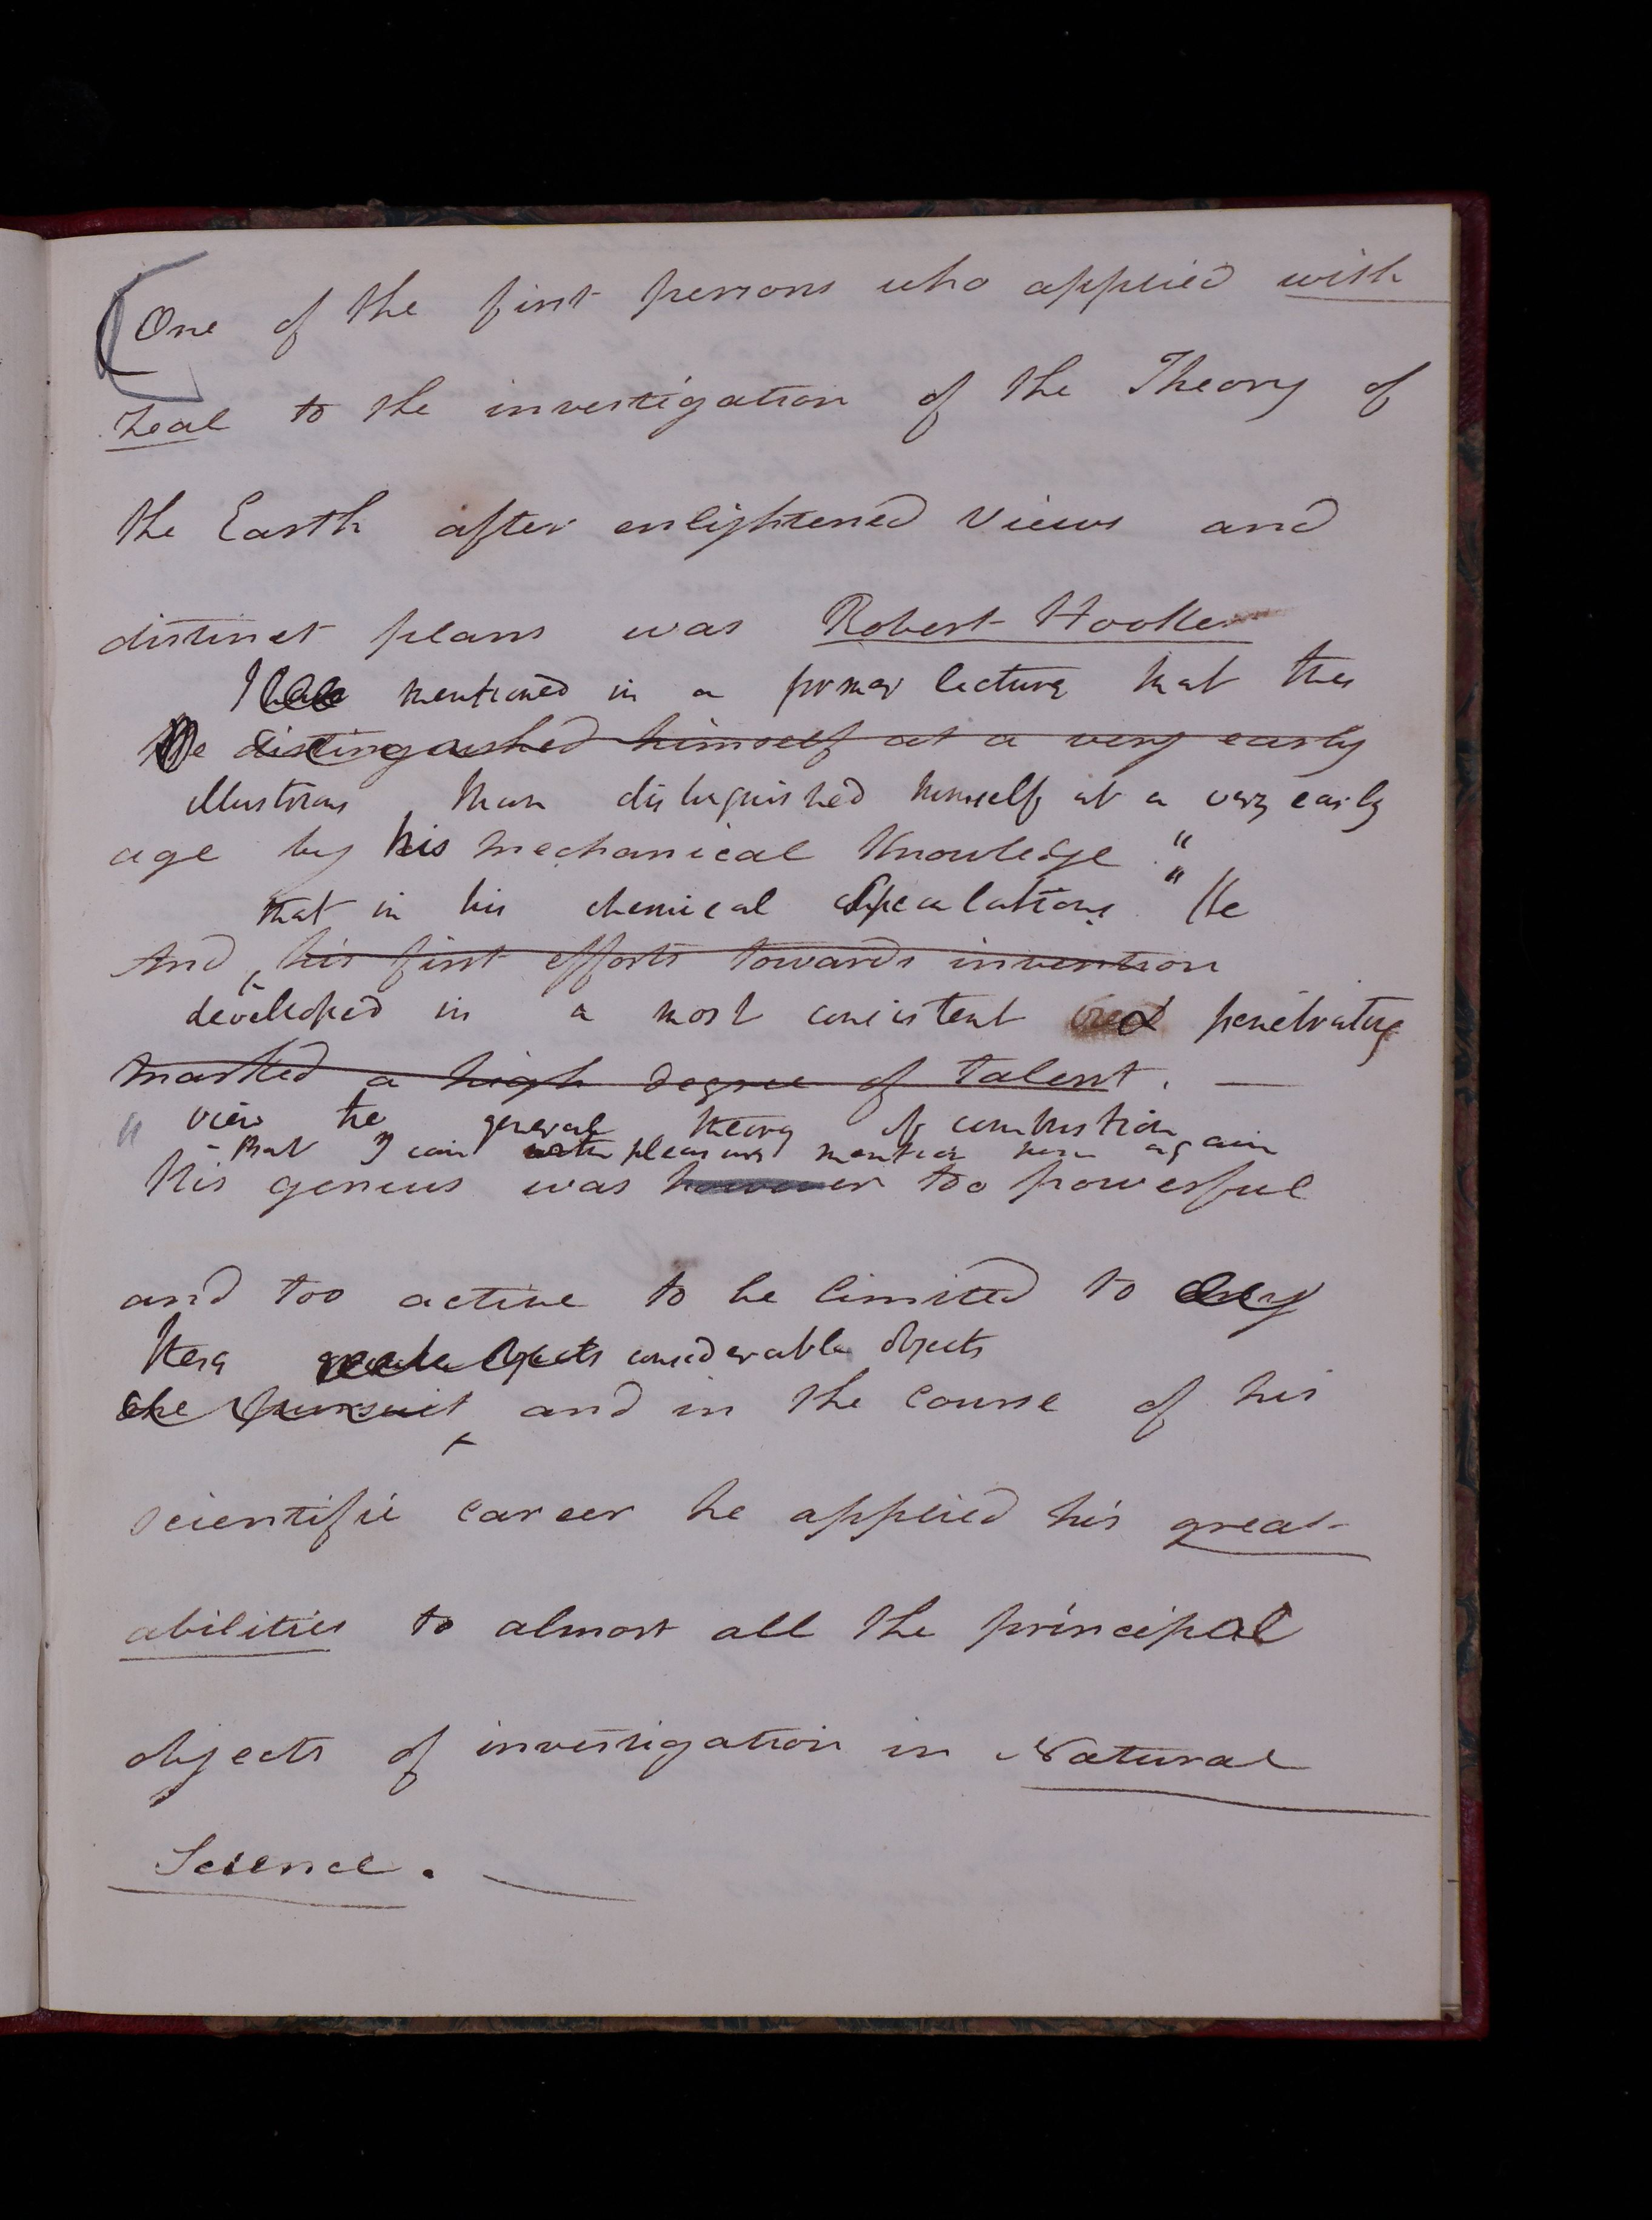 One of the first persons who applied with
Zeal to the investigation of the Theory of
the Earth after enlightened views and
distinct plans was Robert Hooke
I have mentioned in a former lecture that this
He distinguished himself at a very early
illustrious Man distinguished himself at a very early
age by his mechanical Knowledge. "
that in his chemical speculations " He
And his first efforts towards invention
developed in a most consistent and penetrating
marked a high degree of talent. —
" view the general theory of combustion
- that I can with pleasure mention him again
his genius was however too powerful
and too active to be limited to any
these objects considerable objects
one pursuit, and in the course of his
scientific career he applied his great
abilities to almost all the principal
objects of investigation in Natural
Science. —